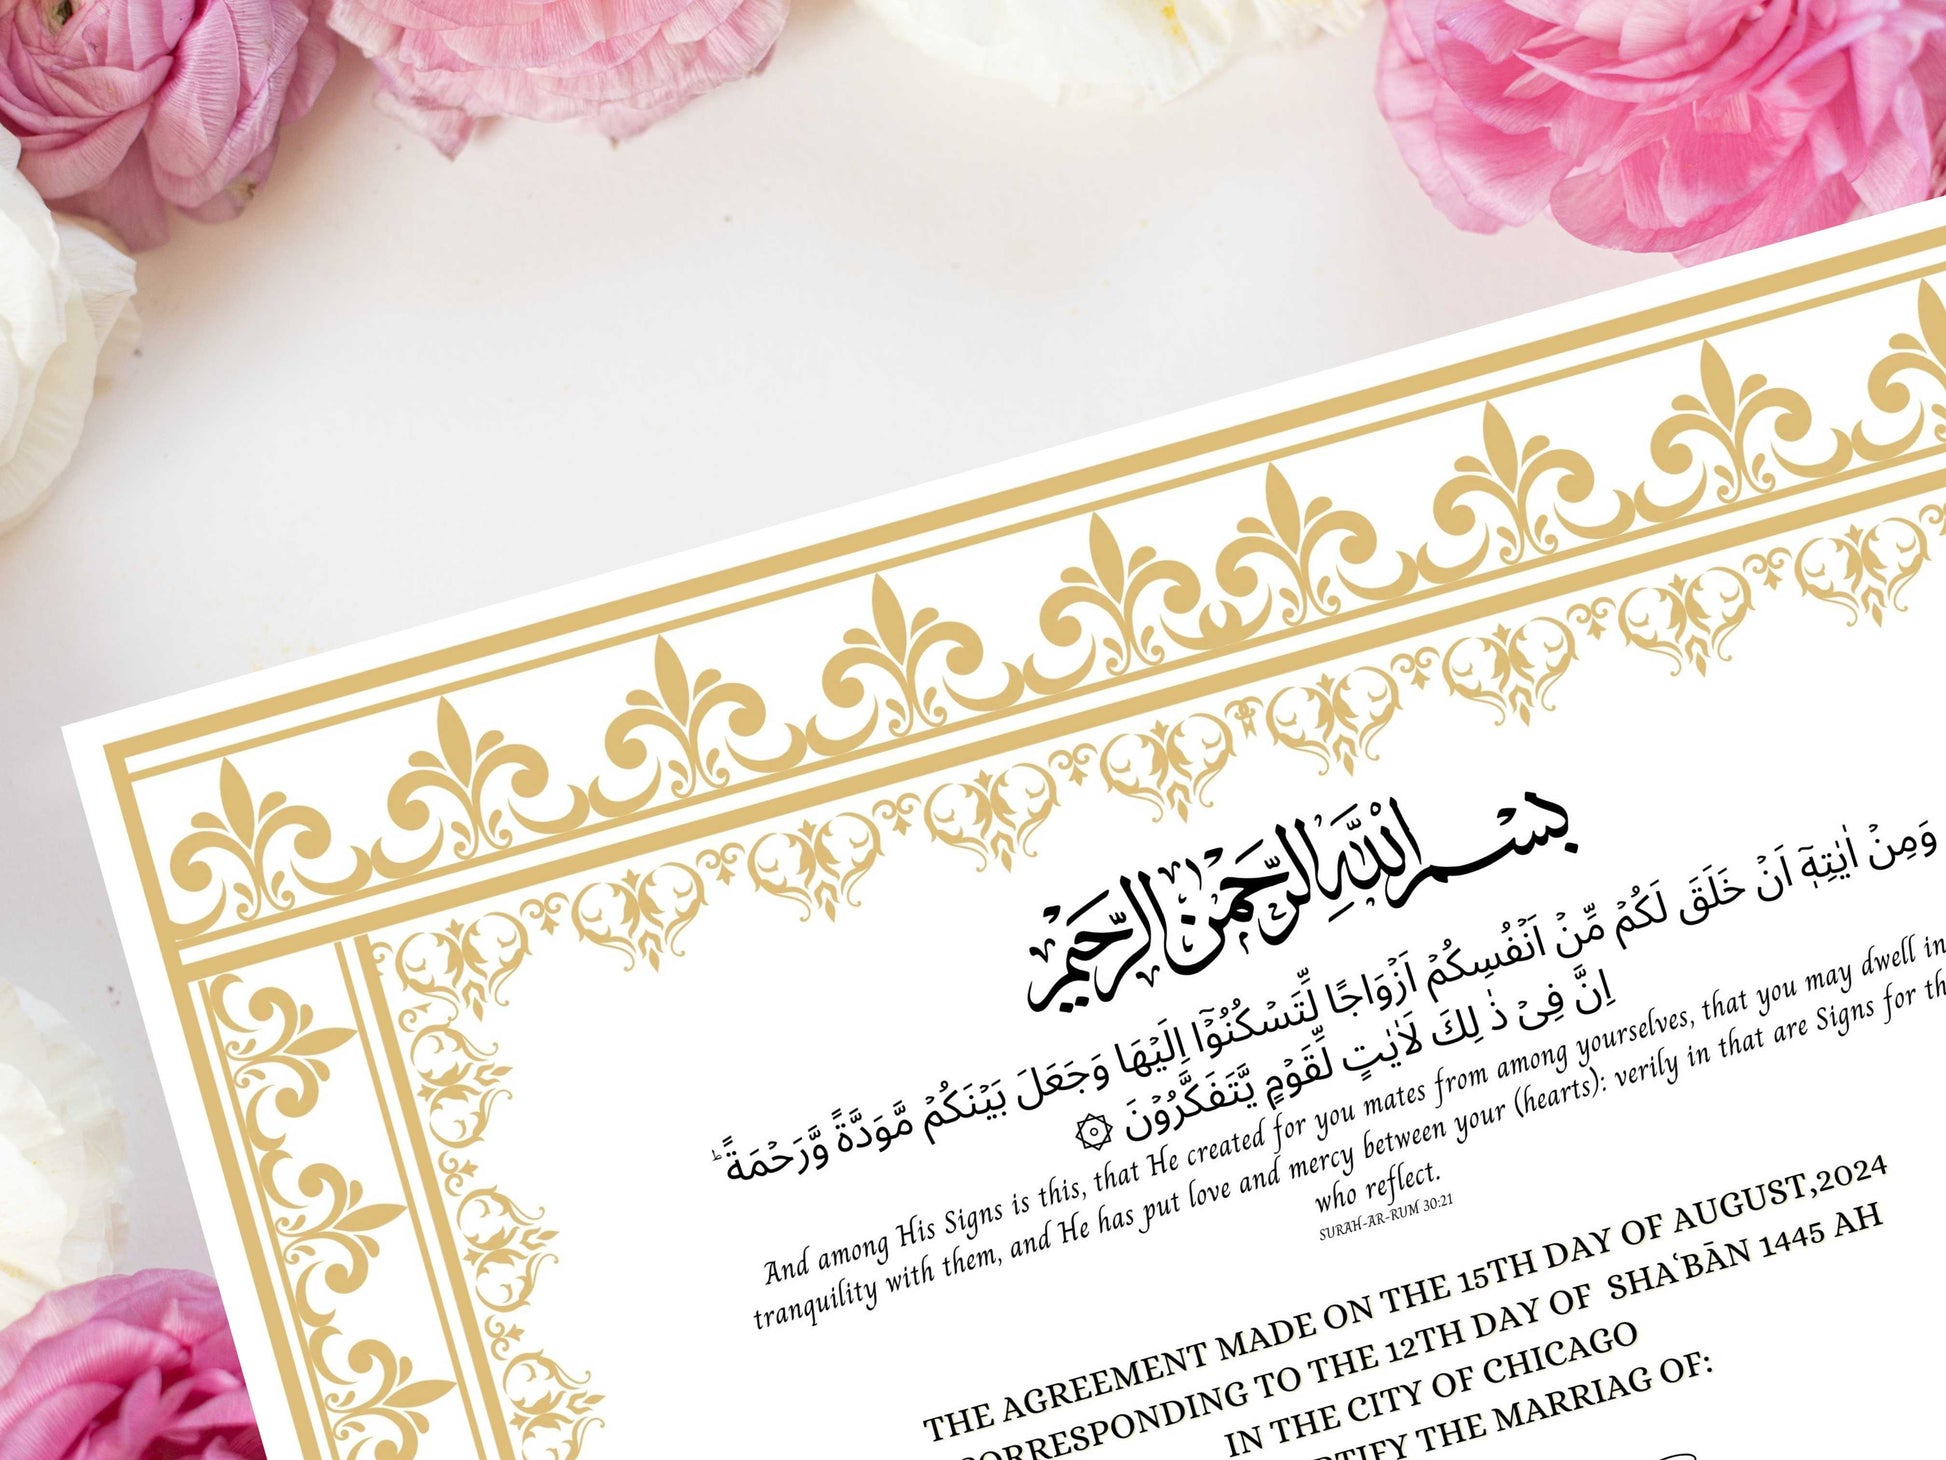 بسم الله الرحمن الرحيم
وَمِنْ اٰيٰتِهٖٓ اَنْ خَلَقَ لَكُمْ مِّنْ اَنْفُسِكُمْ اَزْوَاجًا لِّتَسْكُنُوْٓا اِلَيْهَا وَجَعَلَ بَيْنَكُمْ مَّوَدَّةً وَّرَحْمَةً ؕ
اِنَّ فِىْ ذٰ لِكَ لَاٰيٰتٍ لِّقَوْمٍ يَّتَفَكَّرُوْنَ ۞
And among His Signs is this, that He created for you mates from among yourselves, that you may dwell in
tranquility with them, and He has put love and mercy between your (hearts): verily in that are Signs for
who reflect.
SURAH-AR-RUM 30:21
THE AGREEMENT MADE ON THE 15TH DAY OF AUGUST,2024
CORRESPONDING TO THE 12TH DAY OF SHAʿBĀN 1445 AH
IN THE CITY OF CHICAGO
THE MARRIAG OF: